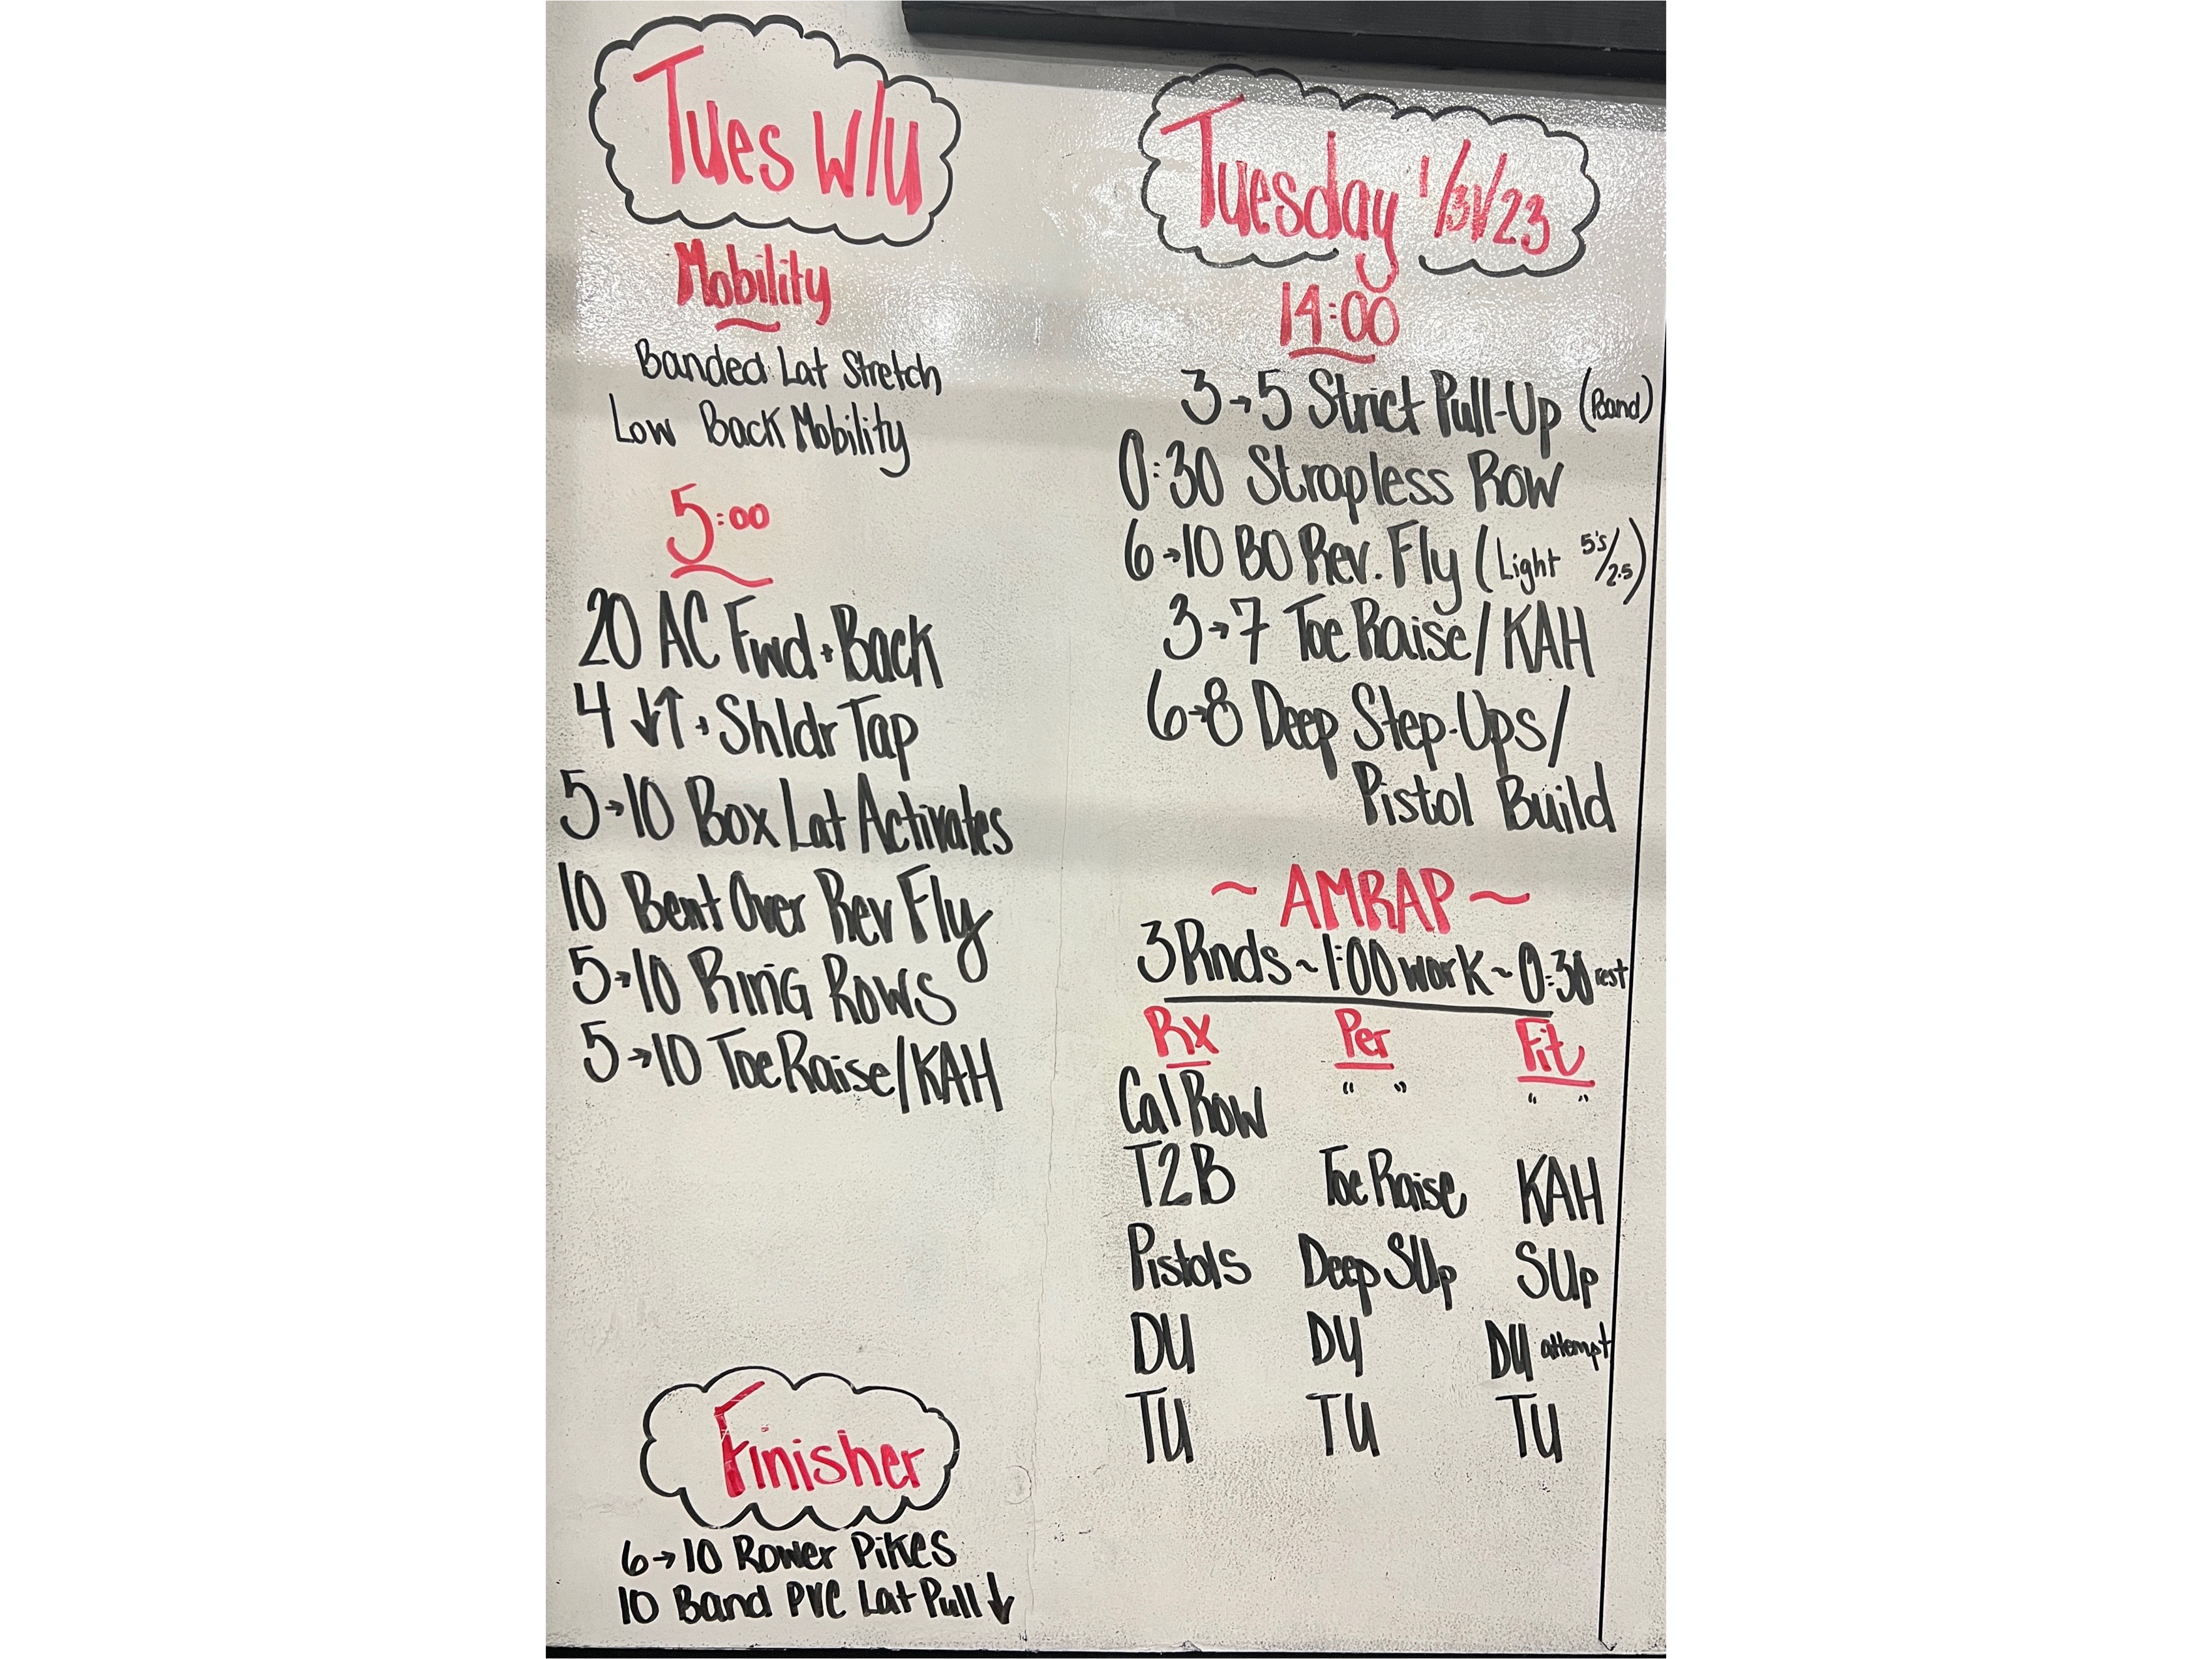 Tues W/U
Mobility
Banded Lat Stretch
Low Back Mobility
5:00
20 AC Fwd + Back
4 ↓↑ + Shldr Tap
5→10 Box Lat Activates
10 Bent Over Rev Fly
5→10 Ring Rows
5→10 Toe Raise/KAH
Finisher
6→10 Rower Pikes
10 Band PVC Lat Pull ↓
Tuesday 1/31/23
14:00
3→5 Strict Pull-Up (Band)
0:30 Strapless Row
6→10 BO Rev. Fly (Light 5's/2.5)
3→7 Toe Raise/KAH
6→8 Deep Step-Ups/
Pistol Build
~ AMRAP ~
3 Rnds ~ 1:00 work ~ 0:30 rest
Rx Per Fit
Cal Row " " " "
T2B Toe Raise KAH
Pistols Deep SUp SUp
DU DU DU attempt
TU TU TU